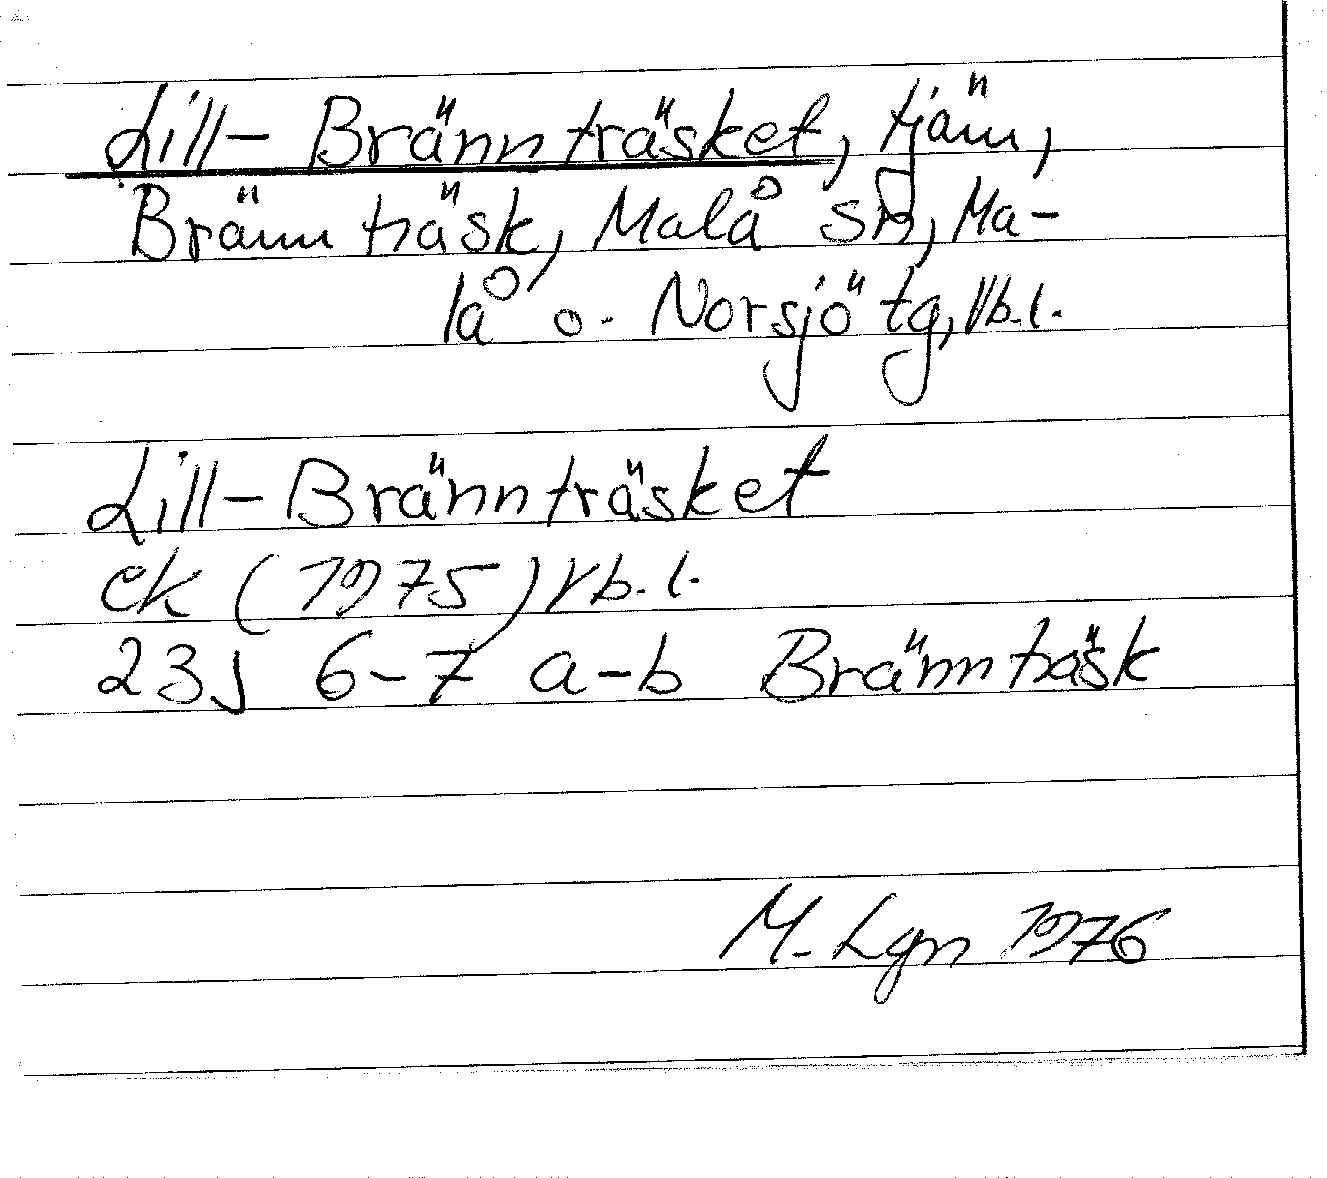 Lill-Bränträsket, tjärn,
Brännträsk, Malå sn, Ma-
lå o. Norsjö tg, Vb.l.
Lill-Brännträsket
ek (1975) Vb.l.
23J 6-7 a-b Brännträsk
M. Lgn 1976